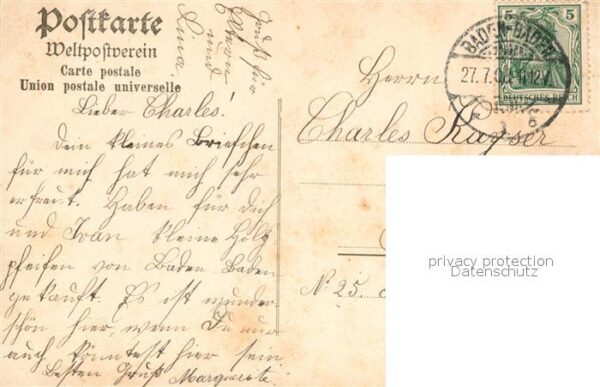 Postkarte
Weltpostverein
Carte postale
Union postale universelle
Gruß für
Eltern
und
Luna.
Lieber Charles!
Dein kleines Briefchen
für mich hat mich sehr
erfreut. Haben für Dich
und Ivan kleine Holz
pfeifen von Baden-Baden
gekauft. Es ist wunder
schön hier, wenn Du nur
auch könntest hier sein.
Besten Gruß Marguerite.
5 5
BADEN-BADEN
27.7.
DEUTSCHES REICH
Herrn
Charles Kayser
privacy protection
Datenschutz
No 25.